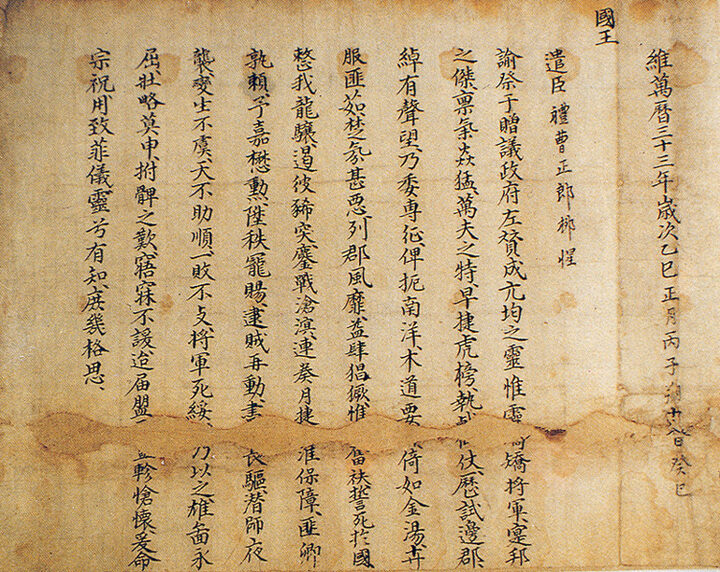 維萬曆三十三年歲次乙巳正月丙子朔十八日癸巳
國王
遣臣禮曹正郎柳惺
諭祭于贈議政府左贊成元均之靈惟靈矯將軍寔邦
之傑禀氣焱猛萬夫之特早捷虎榜執仗歷試邊郡
綽有聲望乃委專征俾扼南洋木道要倚如金湯卉
服匪茹楚氛甚惡列郡風靡益肆猖獗惟奮袂誓死於國
整我龍驤遏彼豨突鏖戰滄溟連葵月捷准保障匪卿
孰賴予嘉懋勳陞秩寵賜逮賊再動書長驅潛師夜
襲變生不虞天不助順一敗不支將軍死綏乃以之雄啚永
屈壯略莫申拊髀之歎寤寐不諼迨屆盟軫愴懷爰命
宗祝用致菲儀靈兮有知庶幾格思